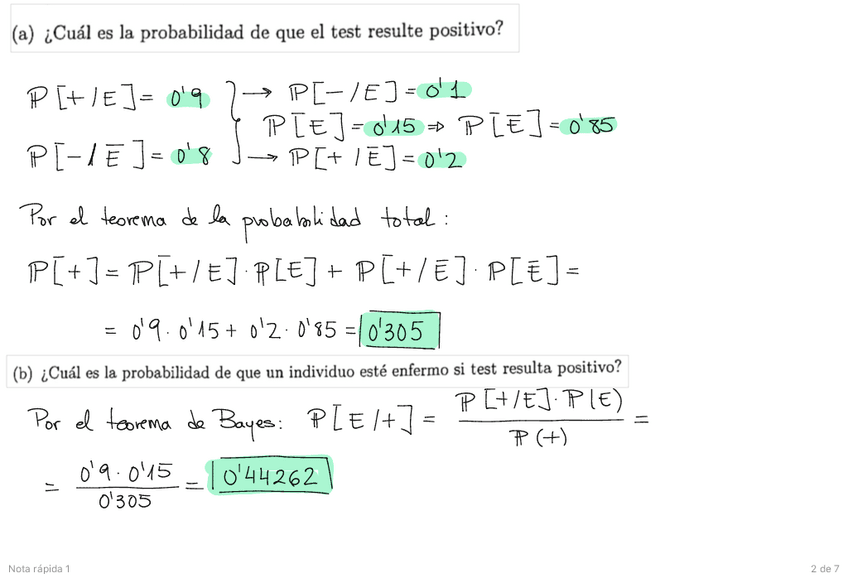 (a) ¿Cuál es la probabilidad de que el test resulte positivo?
ℙ[+/E]= 0'9 } → ℙ[-/E]=0'1
ℙ[E]=0'15 ⇒ ℙ[Ē]=0'85
ℙ[-/Ē]= 0'8 → ℙ[+/Ē]=0'2
Por el teorema de la probabilidad total:
ℙ[+]= ℙ[+/E]·ℙ[E]+ ℙ[+/Ē]·ℙ[Ē]=
= 0'9·0'15+ 0'2·0'85 = 0'305
(b) ¿Cuál es la probabilidad de que un individuo esté enfermo si test resulta positivo?
Por el teorema de Bayes: ℙ[E/+]= ℙ[+/E]·ℙ(E) / ℙ(+) =
= 0'9·0'15 / 0'305 = 0'44262
Nota rápida 1
2 de 7